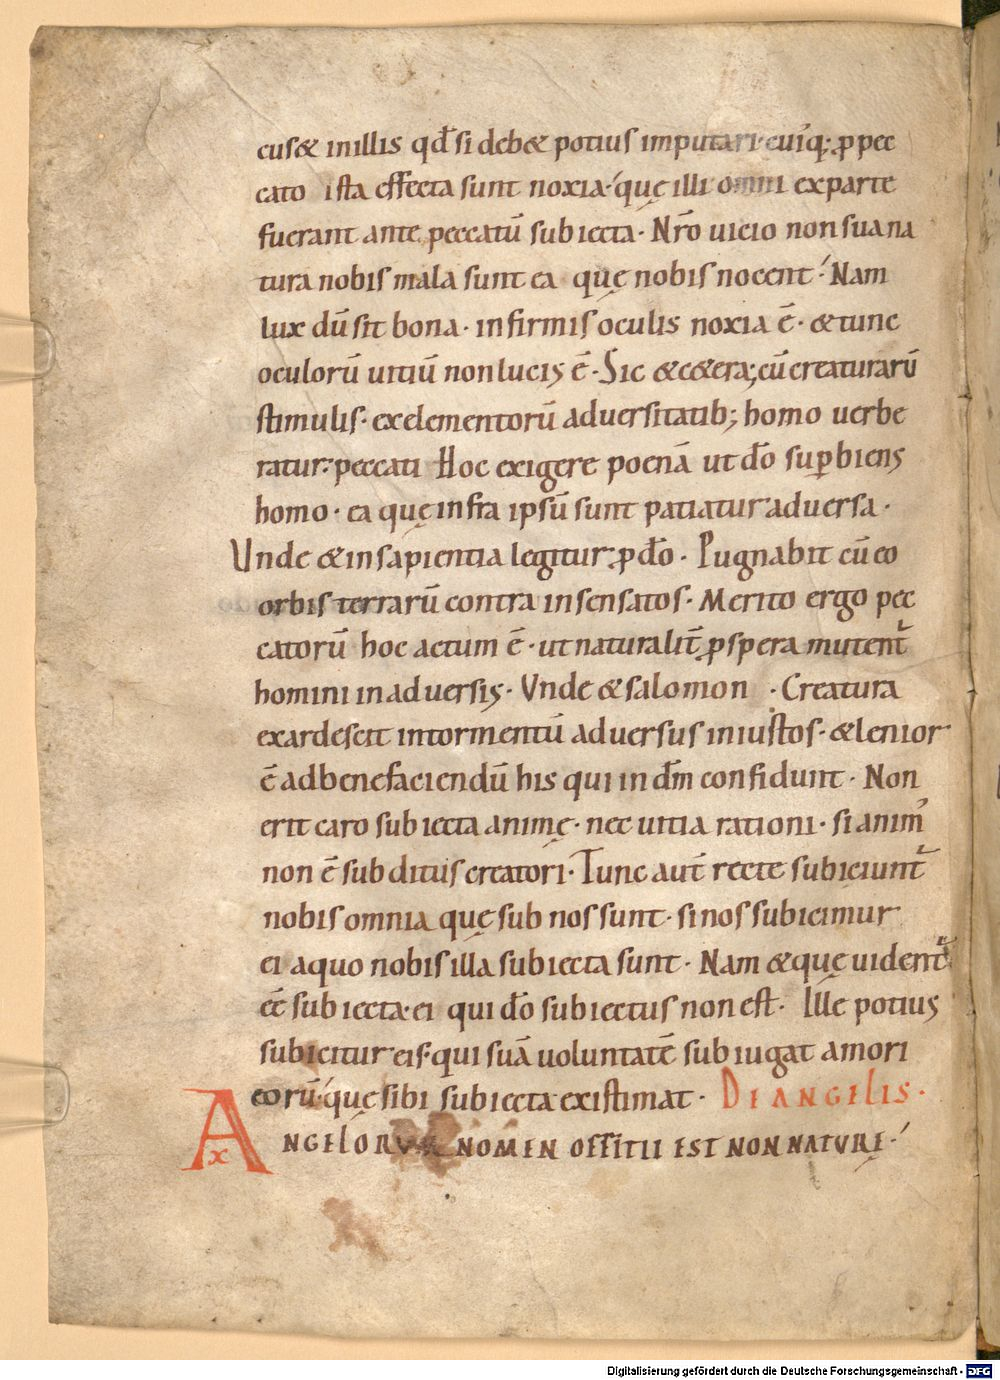 cus& in illis qđ si deb& potius imputari cuiq; ꝓ pec
cato ista effecta sunt noxia· quę illi omni ex parte
fuerant ante peccatū subiecta· Nr̄o uicio non sua na
tura nobis mala sunt ea quę nobis nocent· Nam
lux dū sit bona· infirmis oculis noxia ē· & tunc
oculorū uitiū non lucis ē· Sic & c&era; cū creaturarū
stimulis· ex elementorū aduersitatib; homo uerbe
ratur· peccati Hoc exigere poenā ut dō suꝑbiens
homo· ea quę infra ipsū sunt patiatur aduersa·
Unde & in sapientia legitur· ꝓ dō· Pugnabit cū eo
orbis terrarū contra insensatos· Merito ergo pec
catorū hoc actum ē· ut naturalit̄ ꝓspera mutent᷑
homini in aduersis· Vnde & salomon · Creatura
exardescit in tormentū aduersus iniustos· & lenior
ē ad benefaciendū his qui in dm̄ confidunt· Non
erit caro subiecta animę· nec uitia rationi· si anim᾽
non ē subditus creatori· Tunc aut̄ recte subiciunt᷑
nobis omnia quę sub nos sunt· si nos subicimur
ei a quo nobis illa subiecta sunt· Nam & quę uident᷑
ēē subiecta· ei qui dō subiectus non est· Ille potius
subicitur eis· qui suā uoluntatē subiugat amori
eorū· quę sibi subiecta existimat· DE ANGELIS·
ANGELORVM NOMEN OFFITII EST NON NATVRĘ·
x
Digitalisierung gefördert durch die Deutsche Forschungsgemeinschaft - DFG